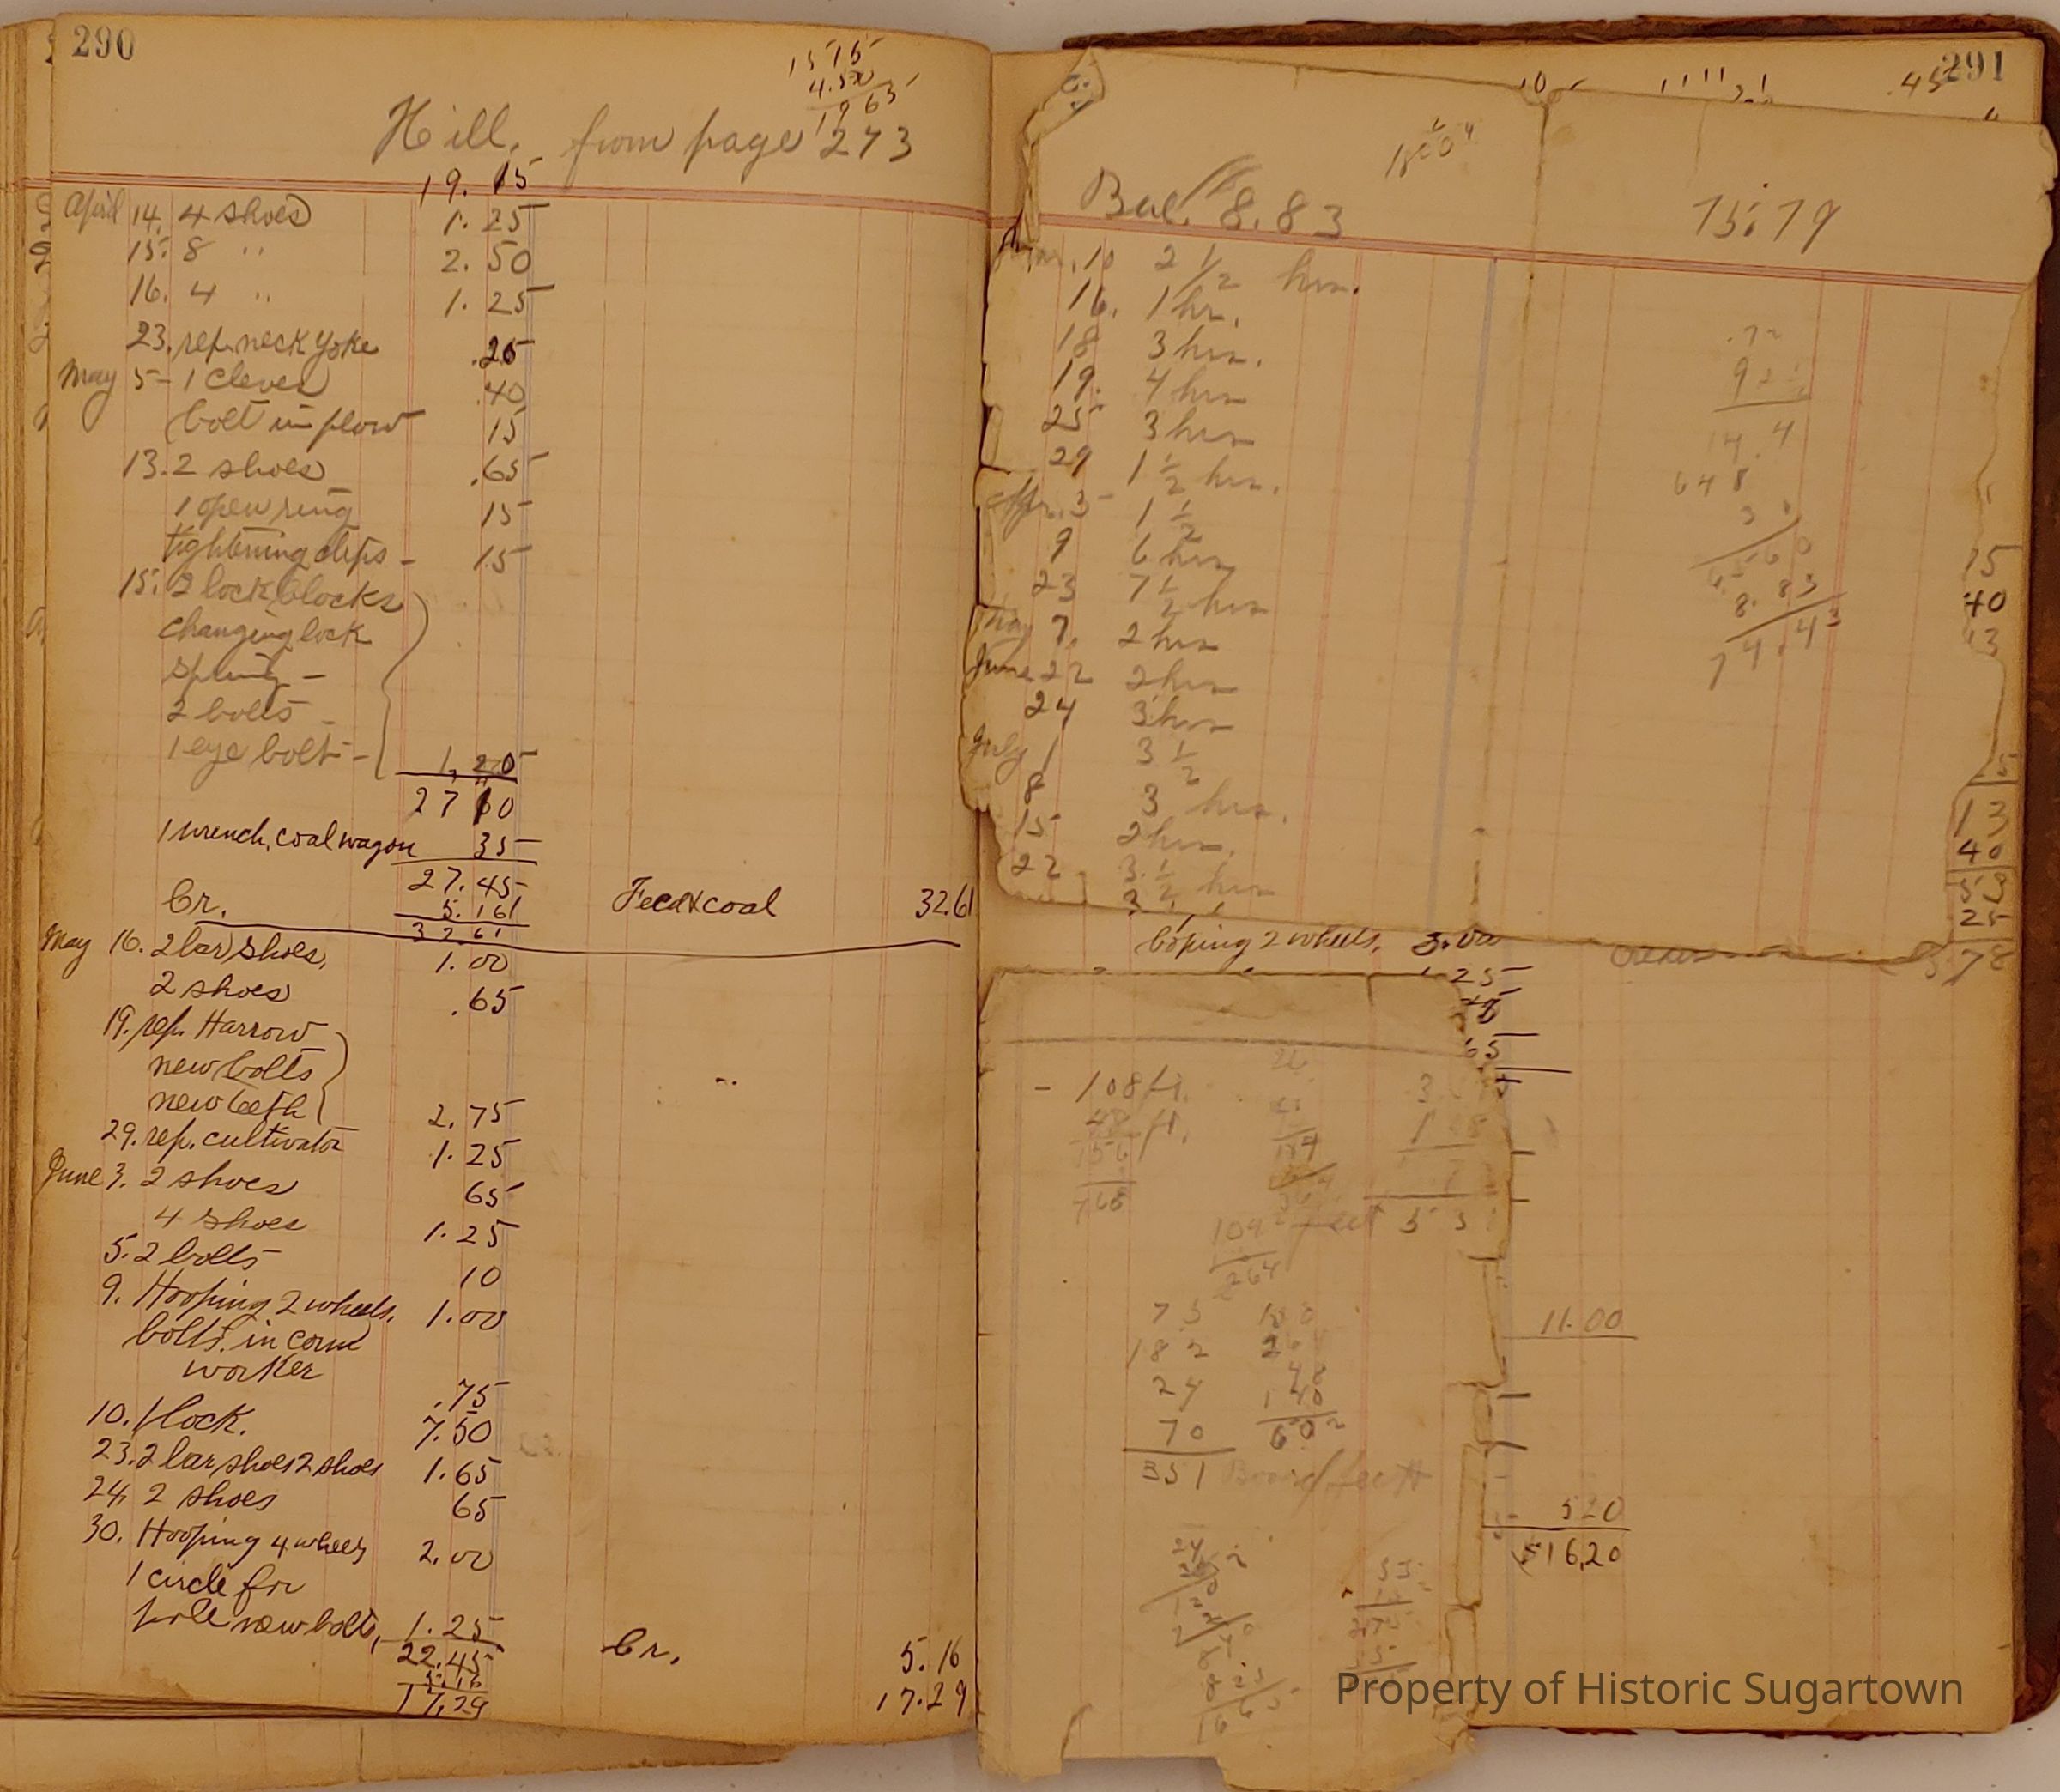 290
1515
4.50
1965
Hill, from page 273
19. 15
April 14. 4 shoes 1.25
15. 8 " 2.50
16. 4 " 1.25
23. rep. neck yoke .25
May 5 - 1 Clever .40
bolt in plow 15
13. 2 shoes .65
1 open ring 15
tightening clips - 15
15. 2 lock blocks
changing lock
spring -
2 bolts -
1 eye bolt - 1.20
27 10
1 wrench, coal wagon 35
27.45
Cr. 5.161 Feed & coal 32.61
32.61
May 16. 2 bar shoes, 1.00
2 shoes .65
19. rep. Harrow
new bolts
new teeth 2.75
29. rep. cultivator 1.25
June 3. 2 shoes 65
4 shoes 1.25
5. 2 bolts 10
9. Hooping 2 wheels, 1.00
bolts in corn
worker .75
10. 1 lock. 7.50
23. 2 bar shoes 2 shoes 1.65
24, 2 shoes 65
30. Hooping 4 wheels 2.00
1 circle for
pole new bolts, 1.25
22.45 Cr. 5.16
5.16
17.29 17.29
291
.45
Bal. 8.83 75.79
Mar. 10 2 1/2 hrs.
16. 1 hr.
18 3 hrs.
19. 4 hrs
25 3 hrs
29 1 1/2 hrs.
Apr. 3 1 1/2
9 6 hrs
23 7 1/2 hrs
May 7. 2 hrs
June 22 2 hrs
24 3 hrs
July 1 3 1/2
8 3 hrs.
15 2 hrs.
22 3 1/2 hrs
.72
14.4
648
8.83
74.43
15
40
13
13
40
53
25
78
oping 2 wheels, 3.00
25
65
- 108 ft.
48 ft.
156
768
109 feet
264
73
182
24
70
351 Board feet
140
602
11.00
5 20
$16.20
Property of Historic Sugartown